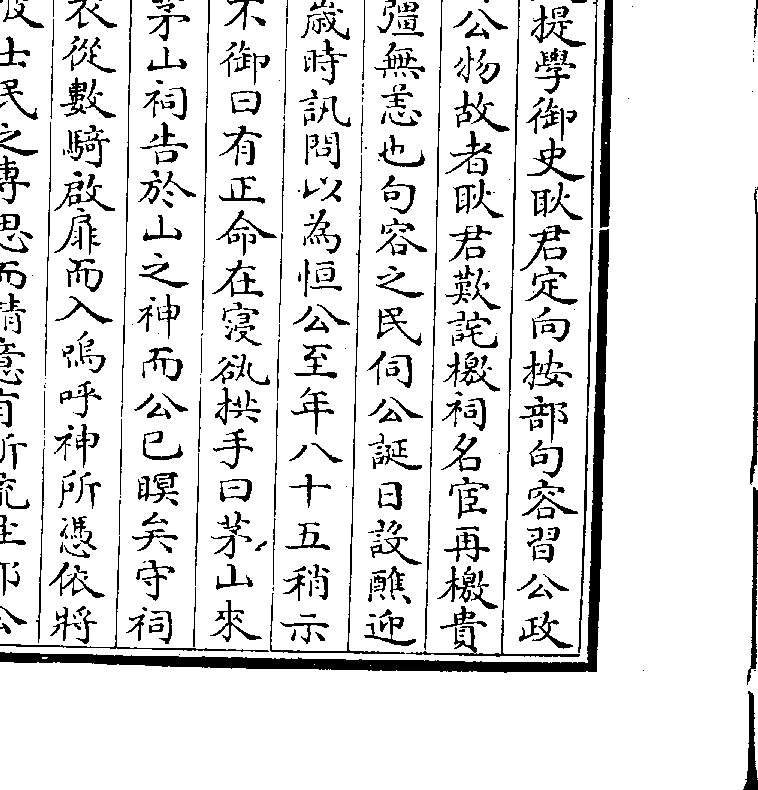 提學御史耿君定向按部句容習公政
公物故者耿君歎詫檄祠名宦再檄貴
彊無恙也句容之民伺公誕日設醮迎
歲時訊問以為恒公至年八十五稍示
不御曰有正命在寢欲拱手曰茅山來
茅山祠告於山之神而公已瞑矣守祠
衣從數騎啟扉而入嗚呼神所憑依將
士民之專思而精意有所